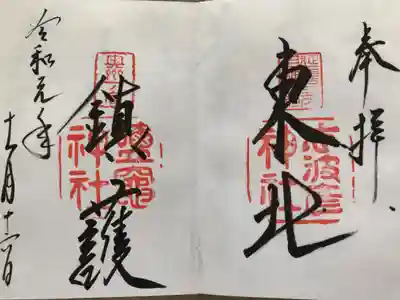 奉拝
東北
志波彦
神社
鎮護
鹽竈
神社
令和元年
十一月十六日